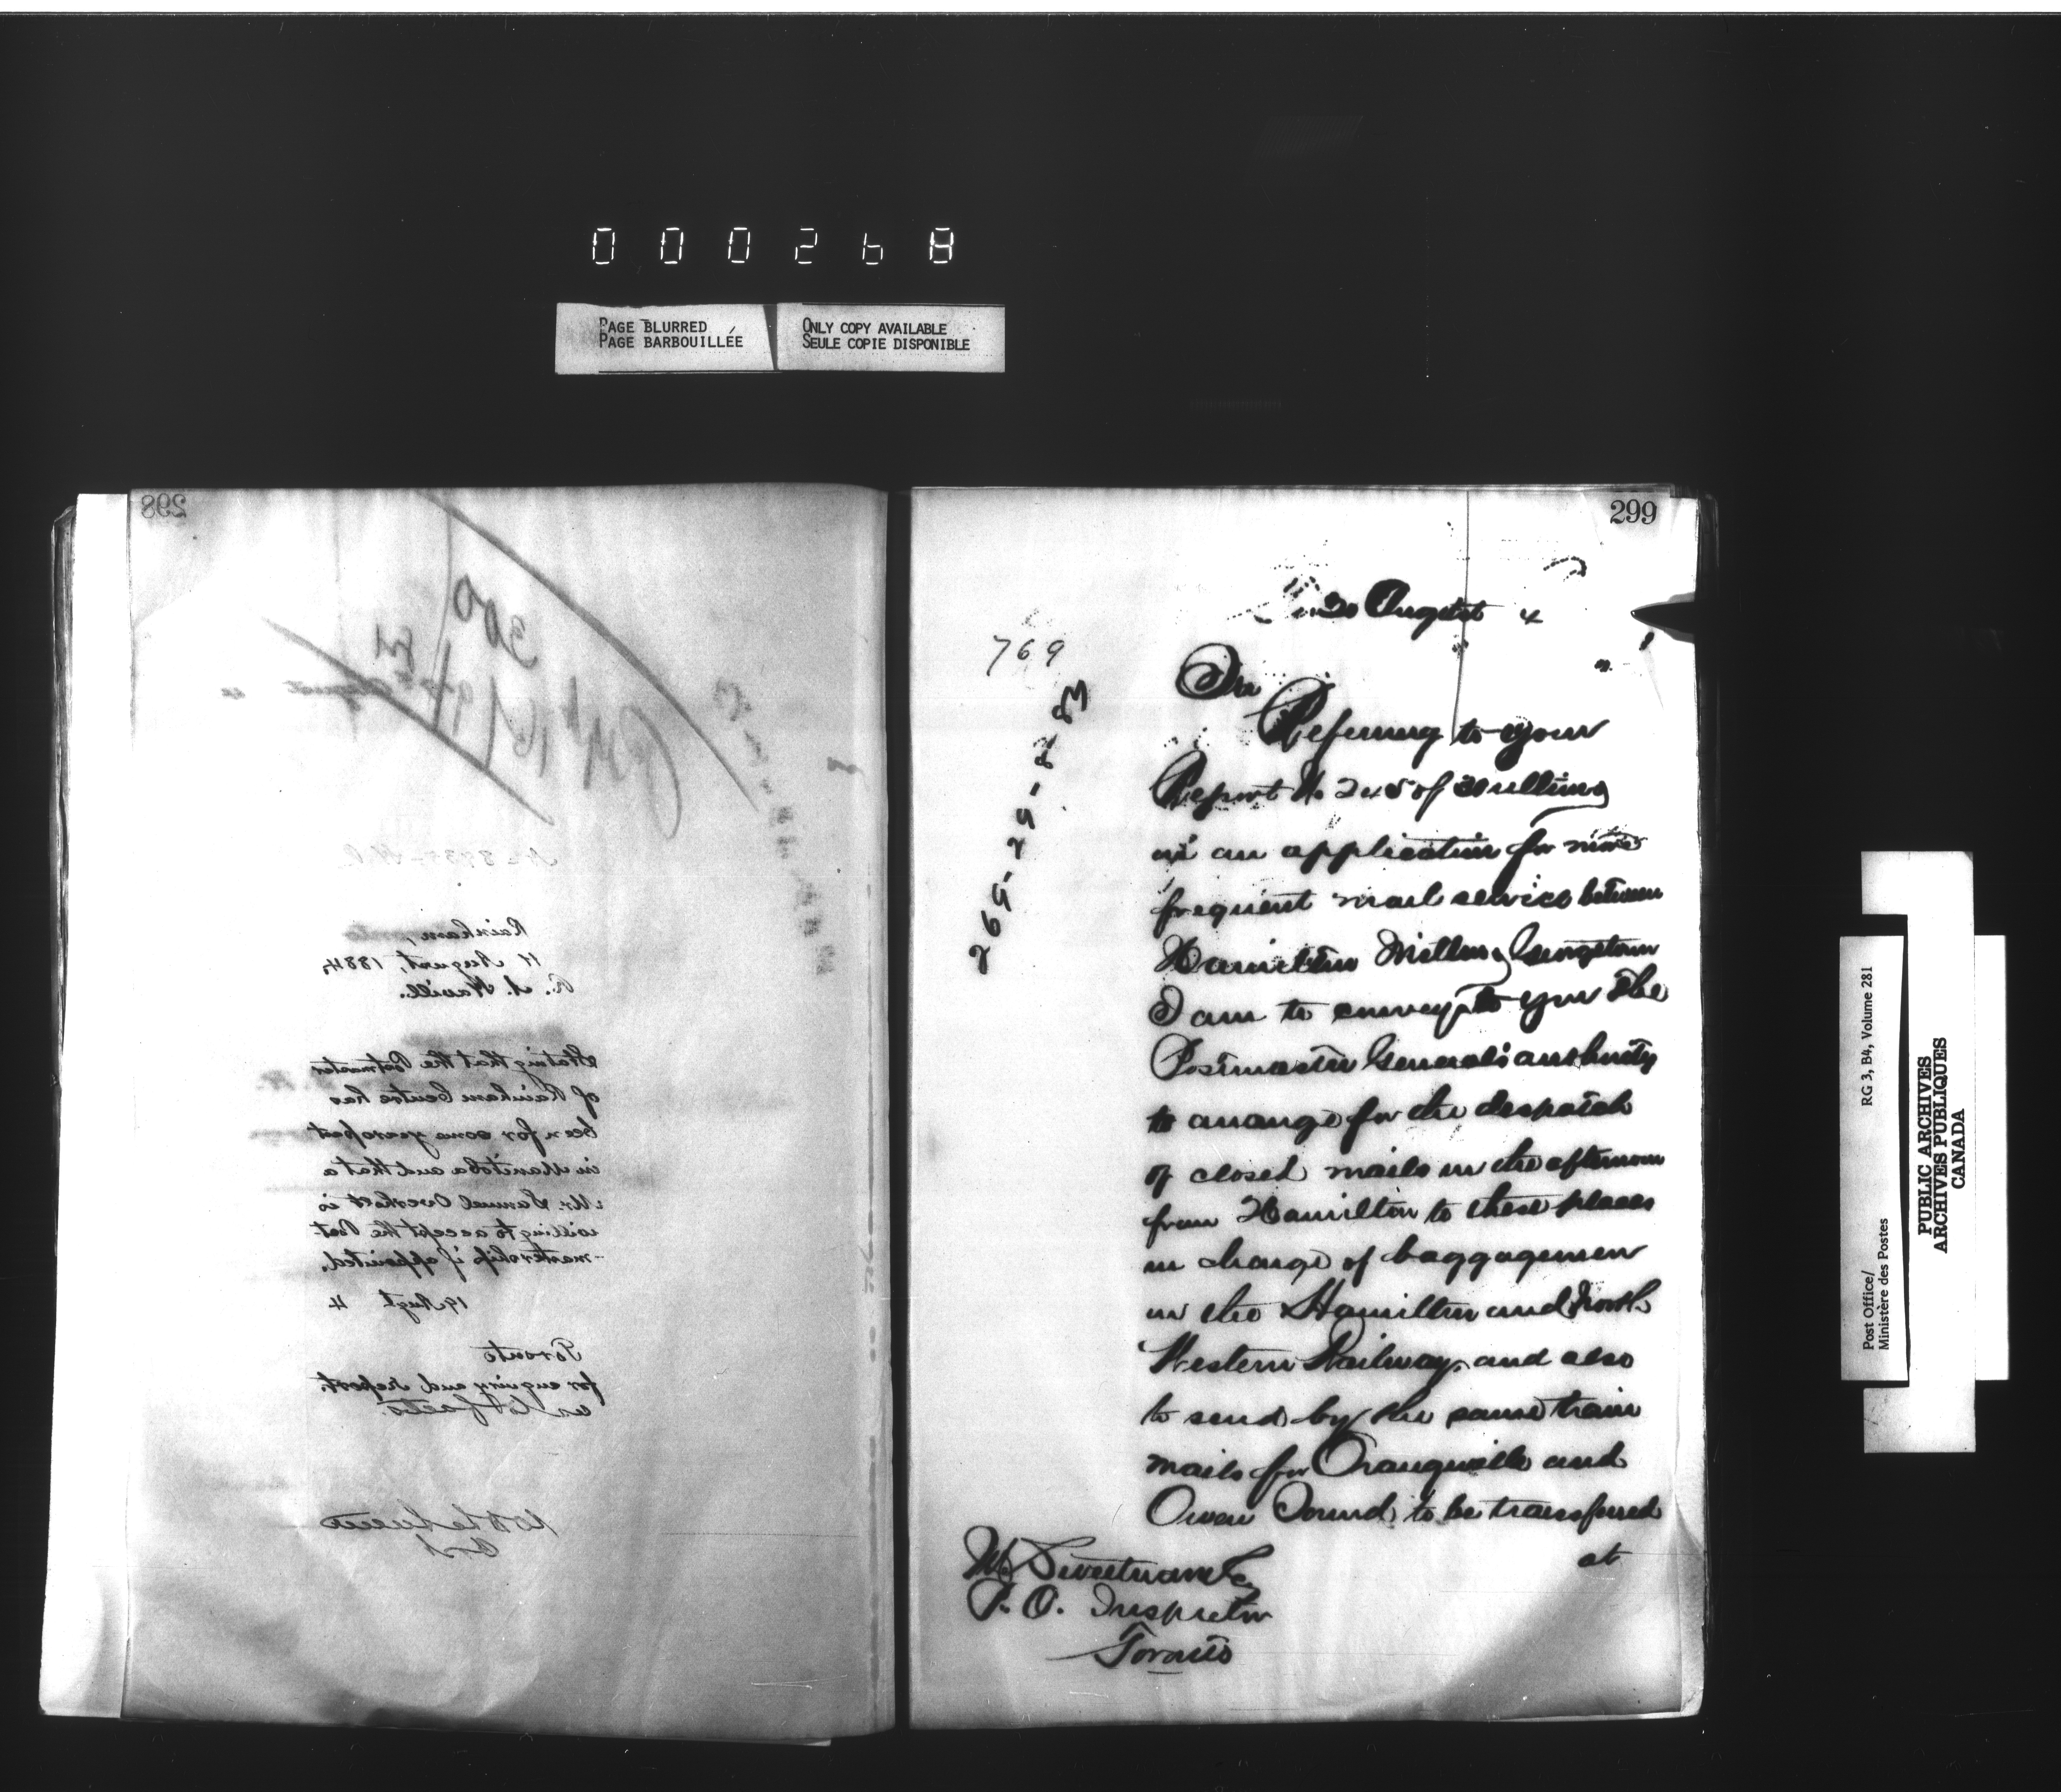 000268
PAGE BLURRED
PAGE BARBOUILLÉE
ONLY COPY AVAILABLE
SEULE COPIE DISPONIBLE
298
300
Rainham,
17 August, 1884,
Stating that the Postmaster
of Rainham Centre has
been for some years past
in Manitoba and that a
Mr. Samuel Overholt is
willing to accept the Post-
mastership if appointed.
19 Augt 4
Toronto
for enquiry and report.
299
20 August 4
769
Sir
Referring to your
Report No 245 of
an application for more
frequent mail service between
Hamilton Milton & Georgetown
I am to convey to you the
Postmaster General's authority
to arrange for the despatch
of closed mails in the afternoon
from Hamilton to these places
in charge of baggagemen
on the Hamilton and North
Western Railway, and also
to send by the same train
mails for Orangeville and
Owen Sound, to be transferred
at
M Sweetnam Esq
P. O. Inspector
Toronto
Post Office/
Ministère des Postes
RG 3, B4, Volume 281
PUBLIC ARCHIVES
ARCHIVES PUBLIQUES
CANADA